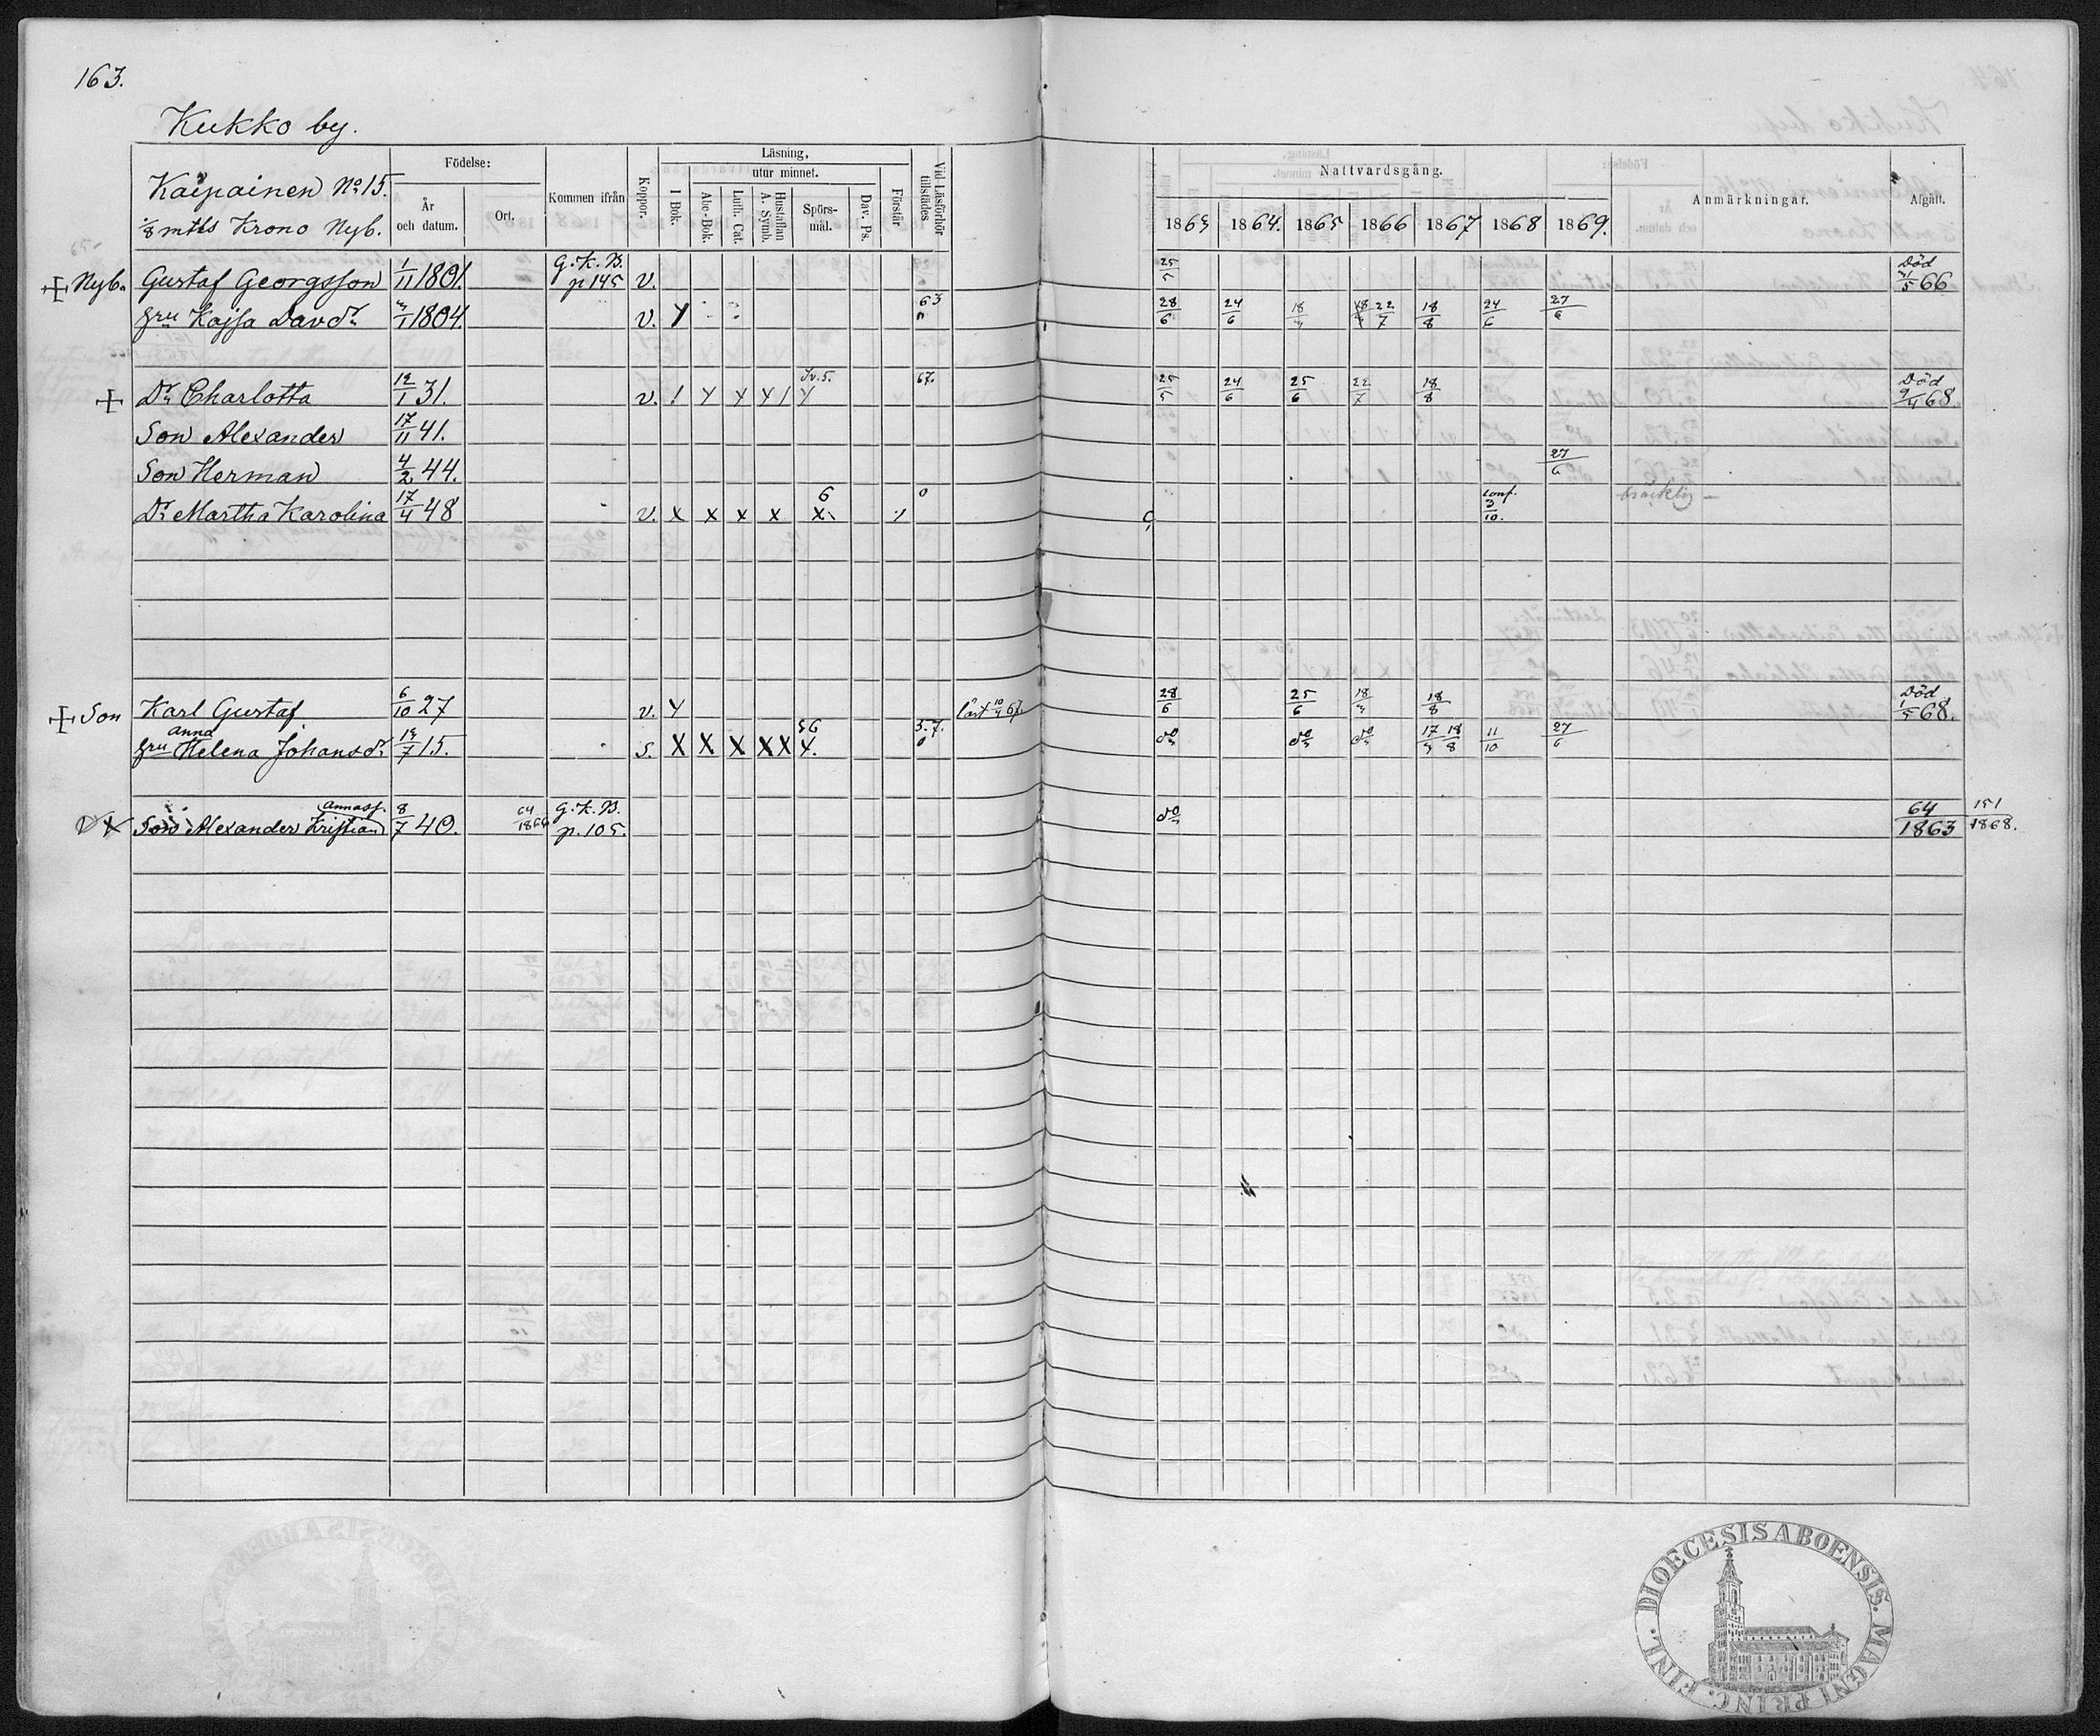 163.
Kukko by.
Kaipainen No 15.
1/8 mtls Krono Nyb.
Födelse:
År och datum.
Ort.
Kommen ifrån
Koppor.
Läsning,
utur minnet.
I Bok.
Abc-Bok.
Luth. Cat.
Hustaflan A. Symb.
Spörs-mål.
Dav. Ps.
Förstår
Vid Läsförhör tillstädes
Nattvardsgång.
1863 1864. 1865 1866 1867 1868 1869.
Anmärkningar.
Afgått.
Nyb. Gustaf Georgsson 1/11 1801. G.K.B. p 145 v. 25/5 Död 31/5 66
Hru Kajsa Davdr 3/1 1804. v. Y 63 28/6 24/6 18/3 22/7 18/8 24/6 27/6
Dr Charlotta 12/1 31. v. Sv. 5. 67. 25/5 24/6 25/6 22/7 18/8 Död 9/4 68.
Son Alexander 17/11 41.
Son Herman 4/2 44. 27/6
Dr Martha Karolina 17/4 48 v. x x x x 6 x 0 conf. 3/10. bräcklig
Son Karl Gustaf 6/10 27 v. Y läst 10/4 67. 28/6 25/6 18/3 18/8 Död 1/5 68.
Hru Anna Helena Johansdr 15. s. X X X XX 56 X. 5.7. do do do 17/3 18/8 11/10 27/6
Son Alexander Kristian Annass. 8/7 40. 64/1866 G.K.B. p. 105. do 64/1863 151/1868.
DIOECESIS ABOENSIS. MAGNI PRINC. FINL.